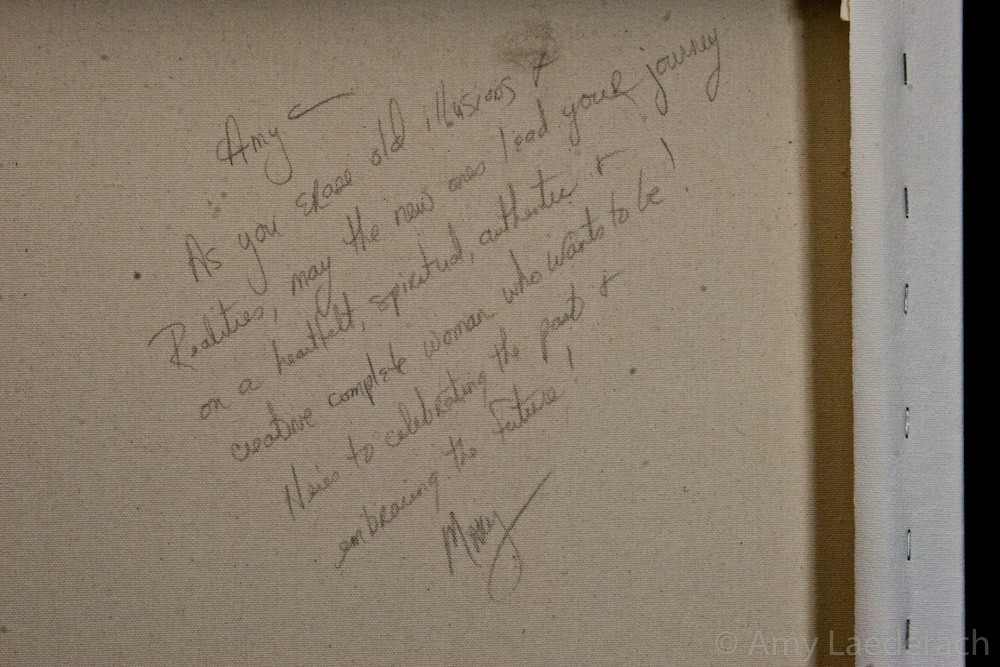 Amy —
As you erase old illusions +
Realities, may the new ones lead your journey
on a heartfelt, spiritual, authentic +
creative complete woman who wants to be!
Here's to celebrating the past +
embracing the future!
Mary
© Amy Laederach